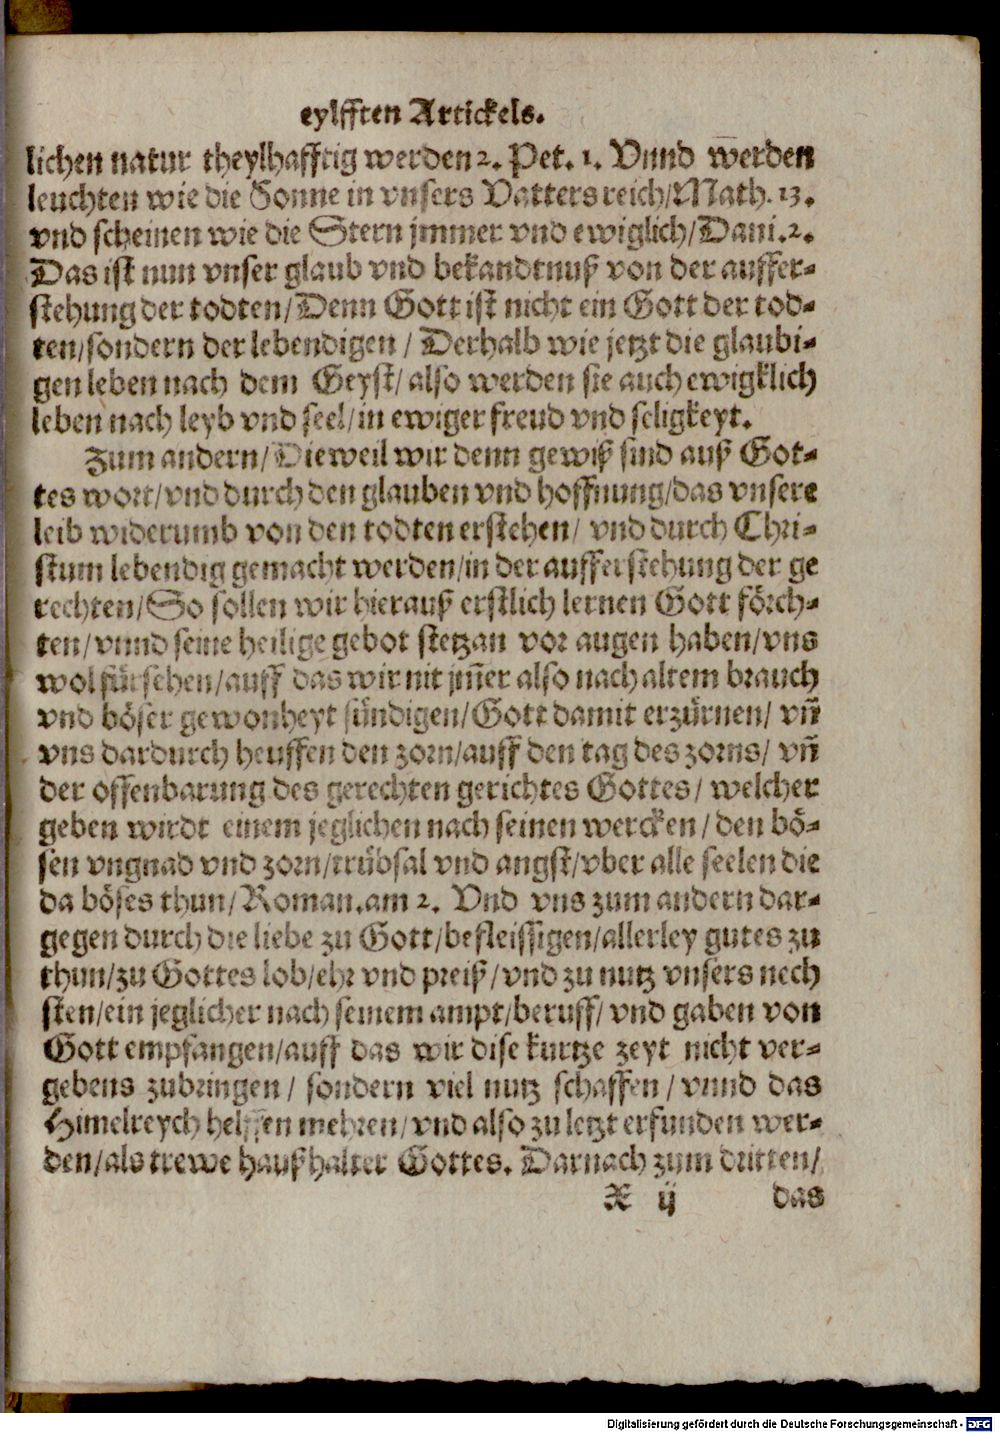 eylfften Artickels.
lichen natur theylhafftig werden 2. Pet. 1. Vnnd werden
leuchten wie die Sonne in vnsers Vatters reich/Math. 13.
vnd scheinen wie die Stern jmmer vnd ewiglich/Dani.2.
Das ist nun vnser glaub vnd bekandtnuß von der auffer-
stehung der todten/Denn Gott ist nicht ein Gott der tod-
ten/sondern der lebendigen / Derhalb wie jetzt die glaubi-
gen leben nach dem Geyst/ also werden sie auch ewigklich
leben nach leyb vnd seel/in ewiger freud vnd seligkeyt.
Zum andern/Dieweil wir denn gewiß sind auß Got-
tes wort/vnd durch den glauben vnd hoffnung/das vnsere
leib widerumb von den todten erstehen/ vnd durch Chri-
stum lebendig gemacht werden/in der aufferstehung der ge
rechten/So sollen wir hierauß erstlich lernen Gott förch-
ten/vnnd seine heilige gebot stetz an vor augen haben/vns
wol fürsehen/auff das wir nit jm̄er also nach altem brauch
vnd böser gewonheyt sündigen/Gott damit erzürnen/ vn̄
vns dardurch heuffen den zorn/auff den tag des zorns/ vn̄
der offenbarung des gerechten gerichtes Gottes/ welcher
geben wirdt einem jeglichen nach seinen wercken / den bö-
sen vngnad vnd zorn/trübsal vnd angst/vber alle seelen die
da böses thun/Roman.am 2. Vnd vns zum andern dar-
gegen durch die liebe zu Gott/befleissigen/allerley gutes zu
thun/zu Gottes lob/ehr vnd preiß/vnd zu nutz vnsers nech
sten/ein jeglicher nach seinem ampt/beruff/ vnd gaben von
Gott empfangen/auff das wir dise kurtze zeyt nicht ver-
gebens zubringen / sondern viel nutz schaffen / vnnd das
Himelreych helffen mehren/vnd also zu letzt erfunden wer-
den/als trewe haußhalter Gottes. Darnach zum dritten/
X ij das
Digitalisierung gefördert durch die Deutsche Forschungsgemeinschaft - DFG